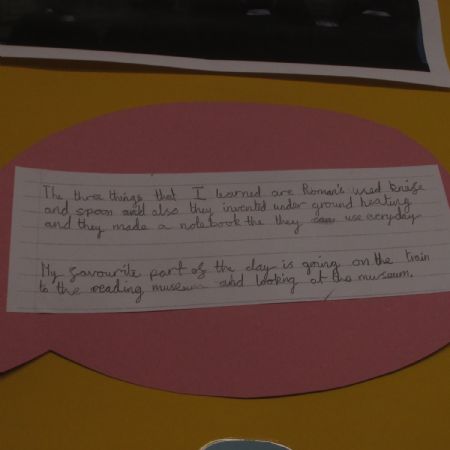 The three things that I learned are Roman's used knife
and spoon and also they invented under ground heating
and they made a notebook the they use everyday
My favourite part of the day is going on the train
to the reading museum and looking at the museum.